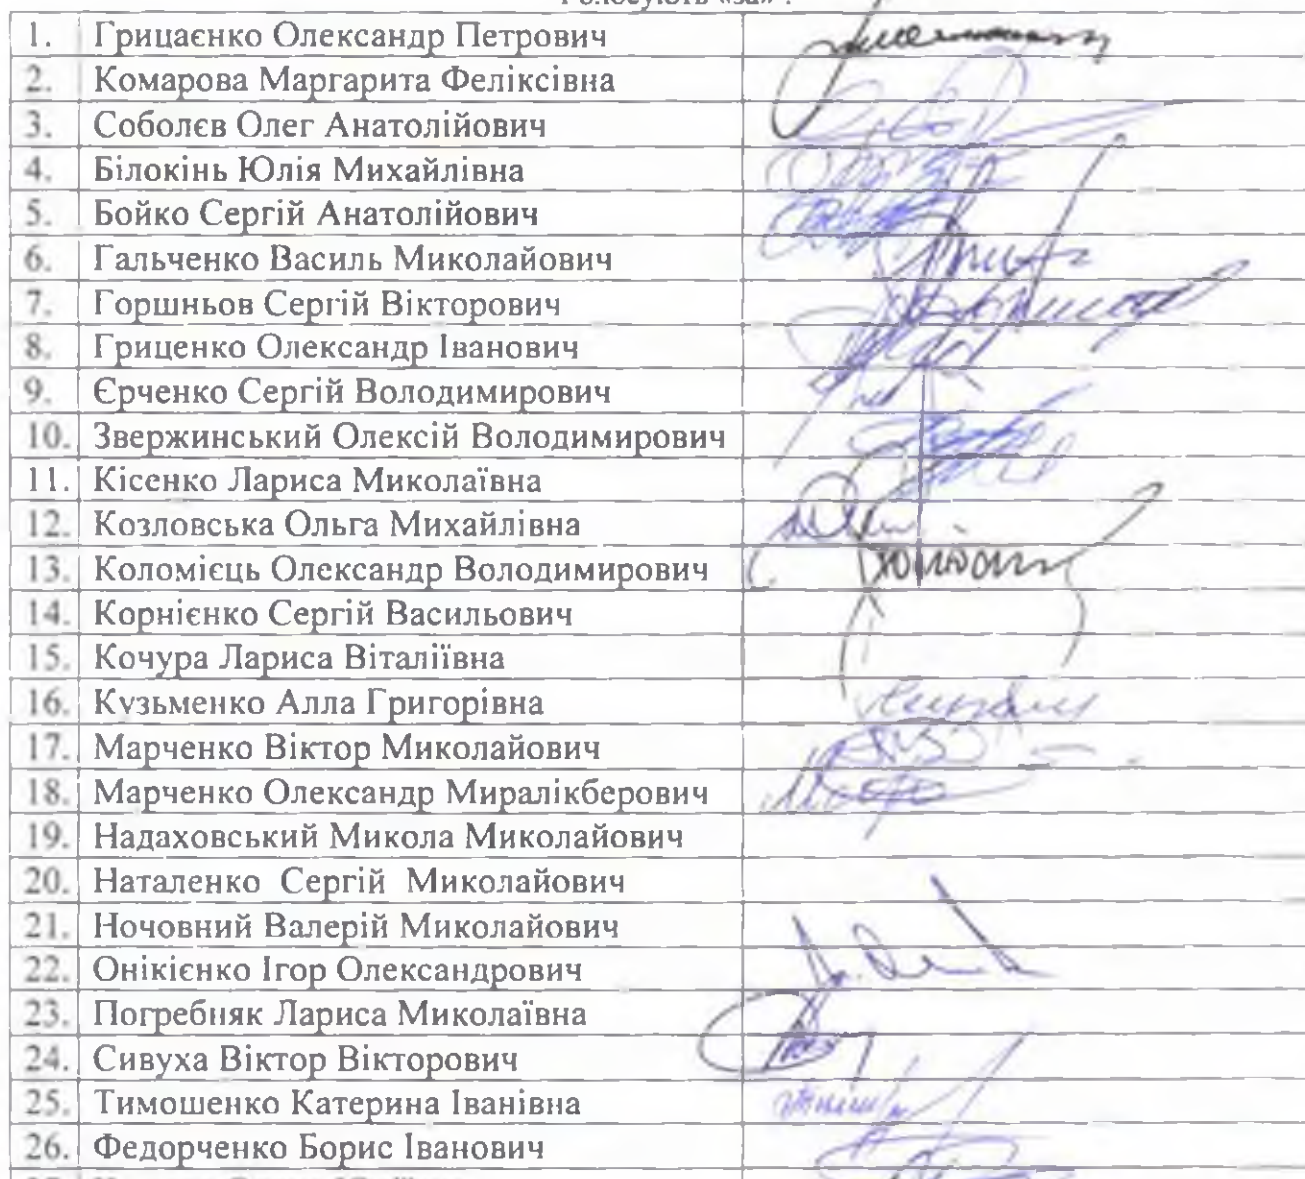 Голосують «за» :
1. Грицаєнко Олександр Петрович
2. Комарова Маргарита Феліксівна
3. Соболєв Олег Анатолійович
4. Білокінь Юлія Михайлівна
5. Бойко Сергій Анатолійович
6. Гальченко Василь Миколайович
7. Горшньов Сергій Вікторович
8. Гриценко Олександр Іванович
9. Єрченко Сергій Володимирович
10. Звержинський Олексій Володимирович
11. Кісенко Лариса Миколаївна
12. Козловська Ольга Михайлівна
13. Коломієць Олександр Володимирович
14. Корнієнко Сергій Васильович
15. Кочура Лариса Віталіївна
16. Кузьменко Алла Григорівна
17. Марченко Віктор Миколайович
18. Марченко Олександр Миралікберович
19. Надаховський Микола Миколайович
20. Наталенко Сергій Миколайович
21. Ночовний Валерій Миколайович
22. Онікієнко Ігор Олександрович
23. Погребняк Лариса Миколаївна
24. Сивуха Віктор Вікторович
25. Тимошенко Катерина Іванівна
26. Федорченко Борис Іванович